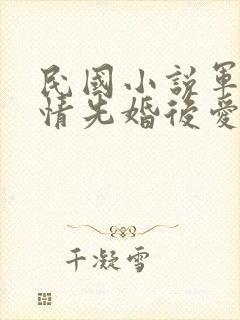 民國小説軍
情先婚後愛
千凝雪